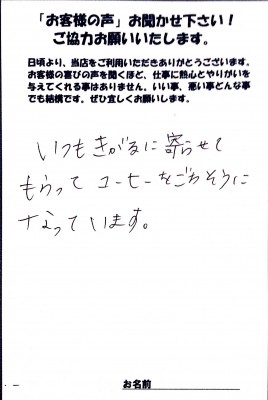 「お客様の声」お聞かせ下さい！
ご協力お願いいたします。
日頃より、当店をご利用いただきありがとうございます。
お客様の喜びの声を聞くほど、仕事に熱心とやりがいを
与えてくれる事はありません。いい事、悪い事どんな事
でも結構です。ぜひ宜しくお願いします。
いつもきがるに寄らせて
もらって コーヒーをごちそうに
なっています。
お名前